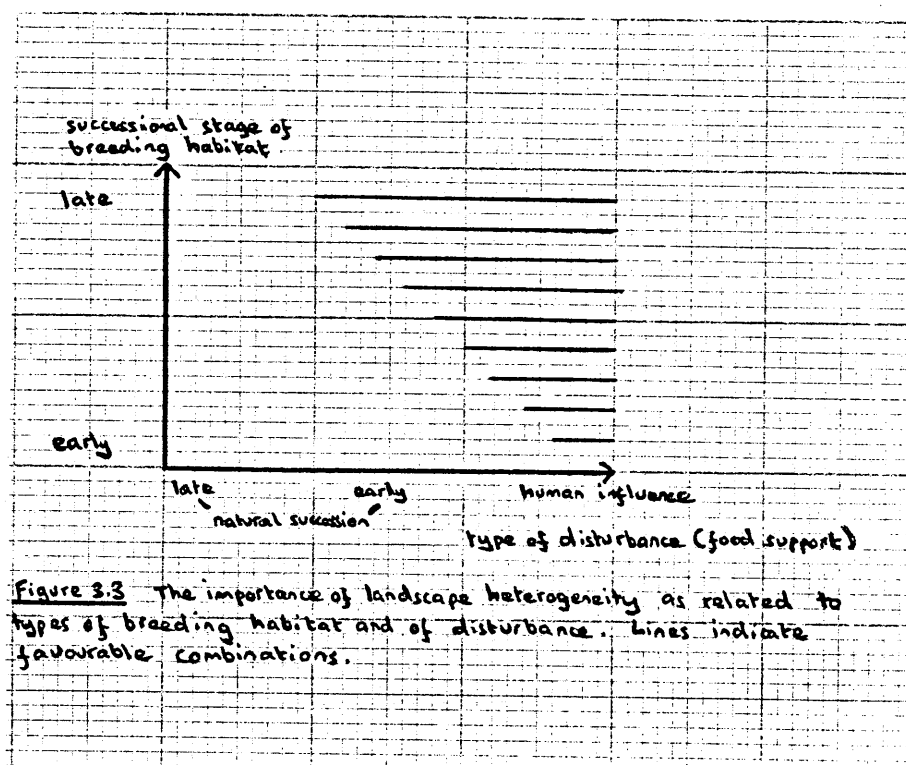 successional stage of
breeding habitat
late
early
late early human influence
natural succession
type of disturbance (food support)
Figure 3.3 The importance of landscape heterogeneity as related to
types of breeding habitat and of disturbance. Lines indicate
favourable combinations.